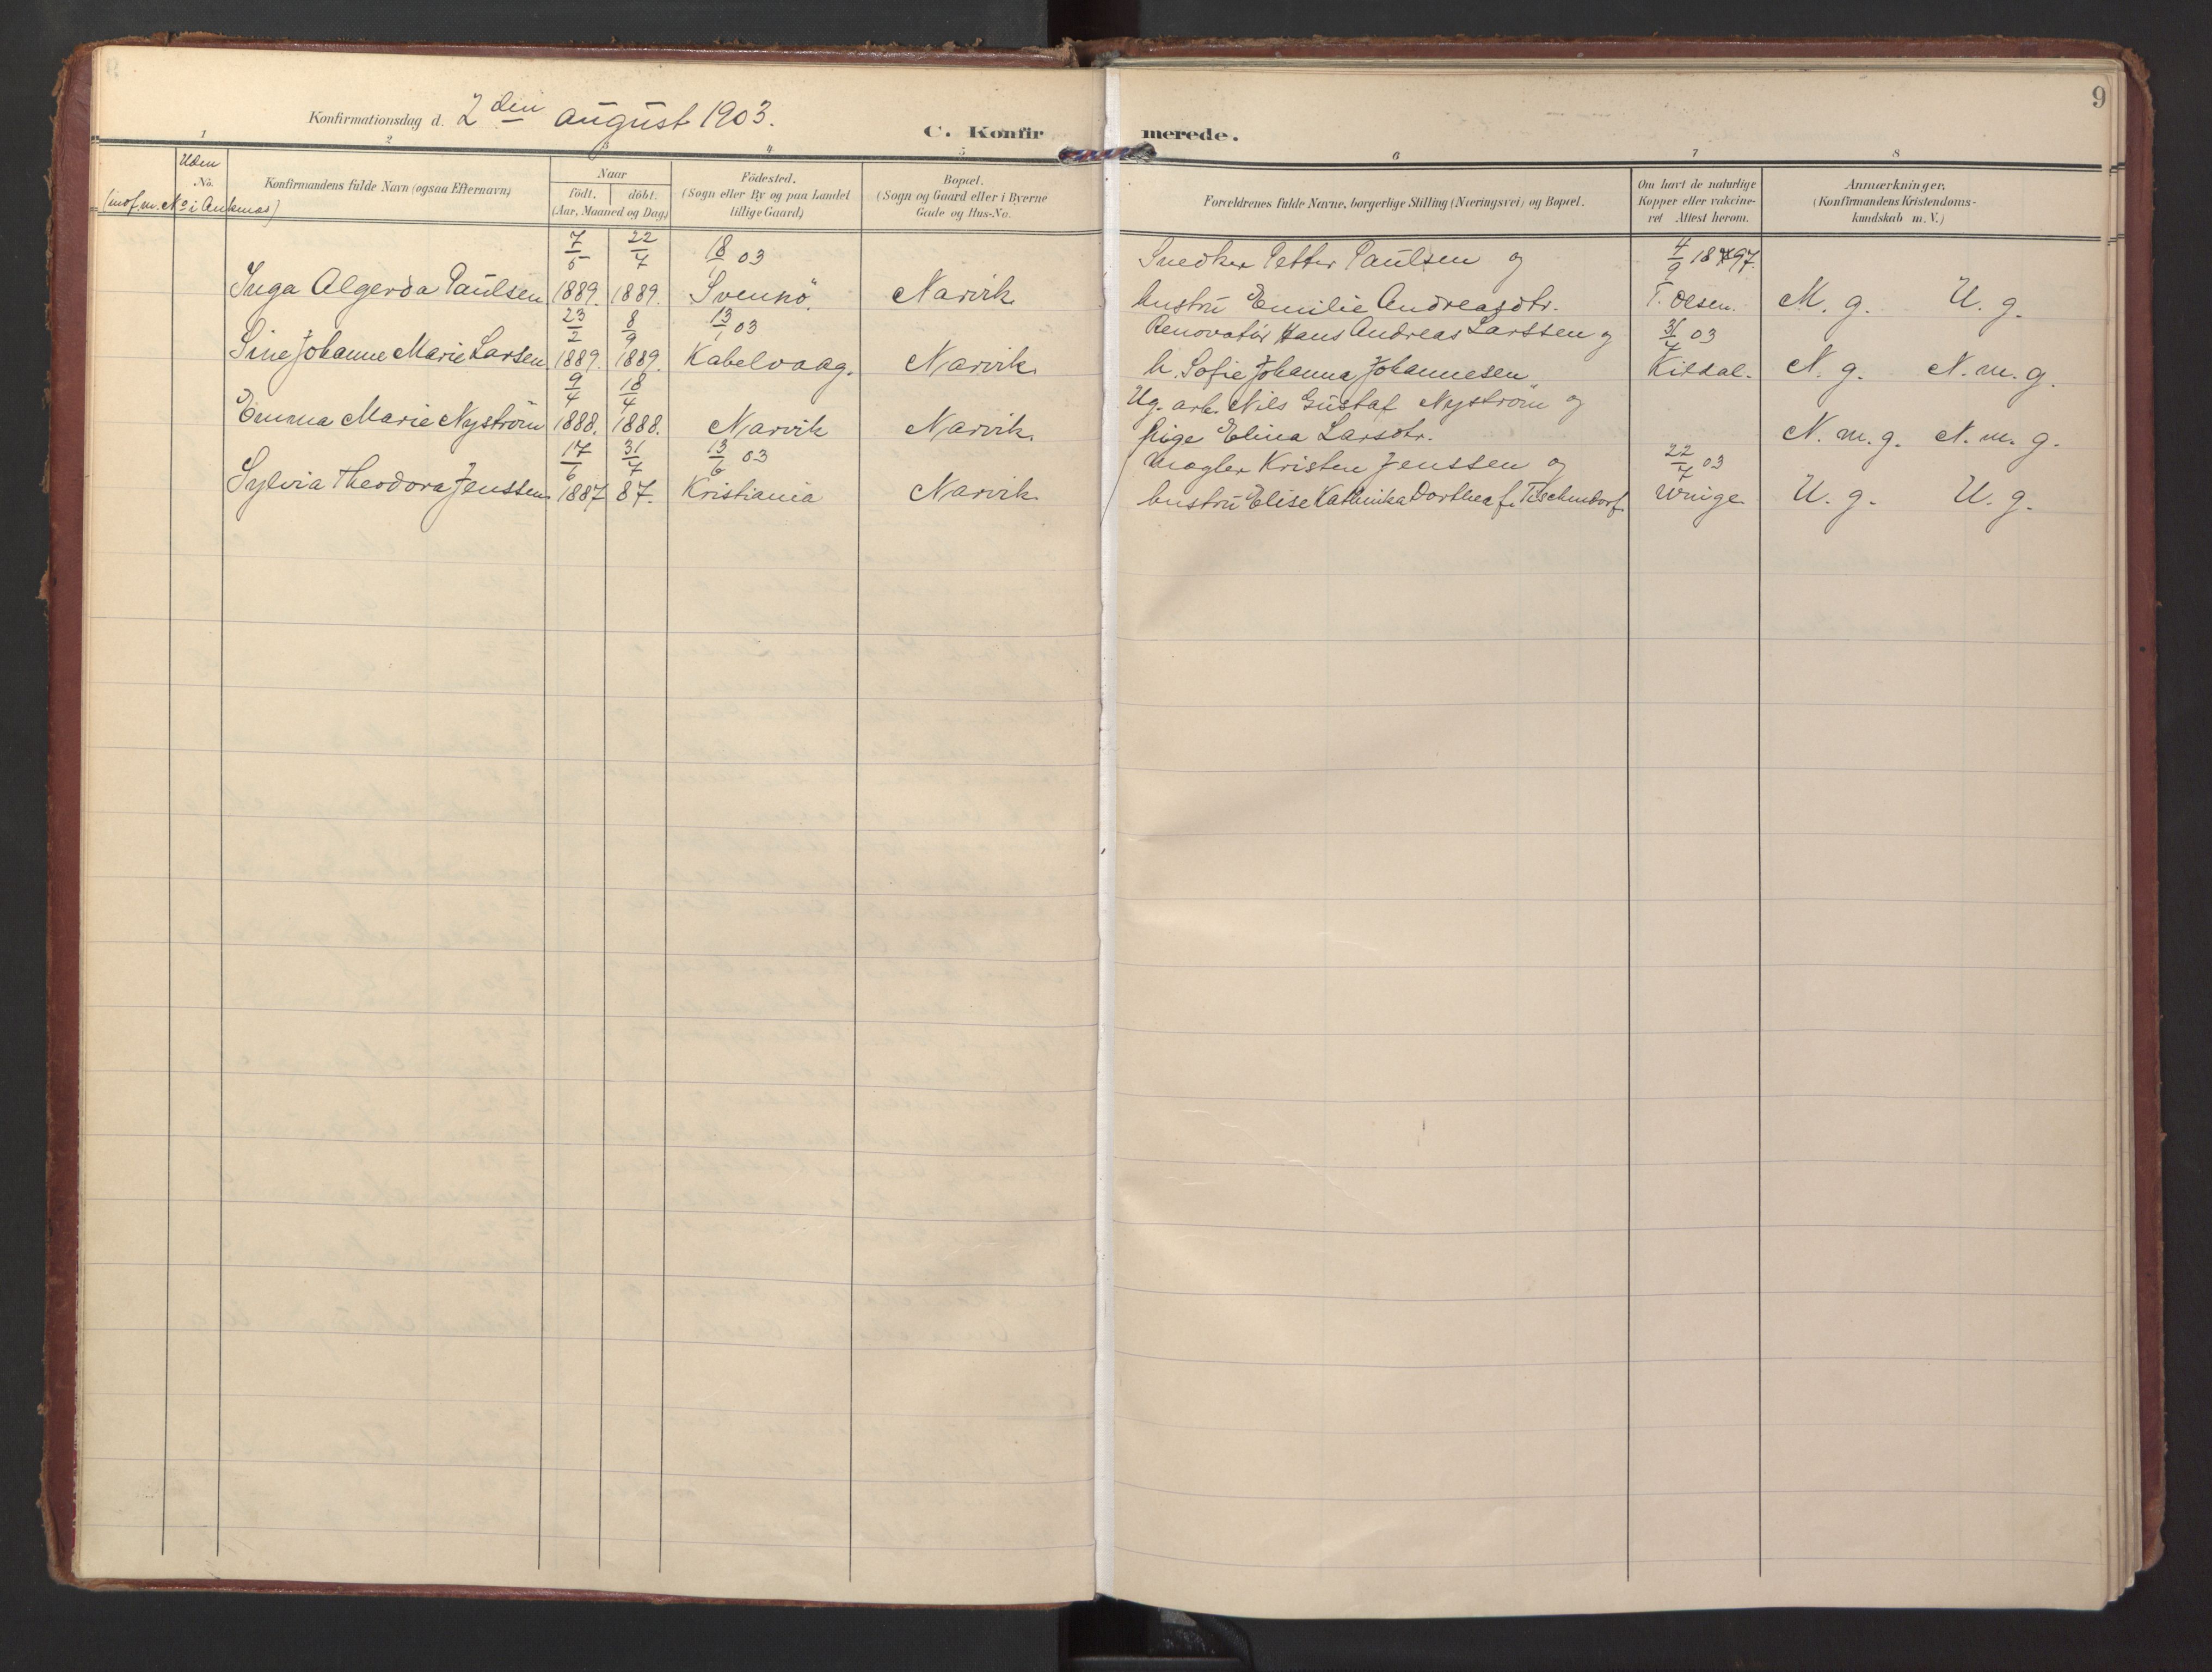 9
Konfirmationsdag d. 2den august 1903.
C. Konfirmerede.
1 2 3 4 5 6 7 8
Uden No.
(indf. m. No i Ankenes)
Konfirmandens fulde Navn (ogsaa Efternavn)
Naar
födt. döbt.
(Aar, Maaned og Dag)
Födested.
(Sogn eller By og paa Landet
tillige Gaard)
Bopæl.
(Sogn og Gaard eller i Byerne
Gade og Hus-No.
Forældrenes fulde Navne, borgerlige Stilling (Næringsvei) og Bopæl.
Om havt de naturlige
Kopper eller vakcine-
ret Attest herom.
Anmærkninger.
(Konfirmandens Kristendoms-
kundskab m. V.)
7/5 22/7 18/1 03 Snedker Petter Paulsen og 4/9 1897.
Inga Algerda Paulsen 1889. 1889. Svennö Narvik hustru Emilie Andreasdtr. T. Olsen. M. g. U. g.
23/2 8/9 13/1 03 Renovatør Hans Andreas Larssen og 31/7 03
Sine Johanne Marie Larsen 1889. 1889. Kabelvaag. Narvik. h. Sofie Johanna Johannesen Kildal. N. g. N. m. g.
9/4 18/4 Ug. arb. Nils Gustaf Nyström og
Emma Marie Nyström 1888. 1888. Narvik Narvik. Pige Elina Larsdtr. N. m. g. N. m. g.
17/6 31/7 13/6 03 Mægler Kristen Jenssen og 22/7 03
Sylvia Theodora Jenssen 1887 87. Kristiania Narvik. hustru Elise Kathinka Dorthea f. Tischendorf. Winge U. g. U. g.